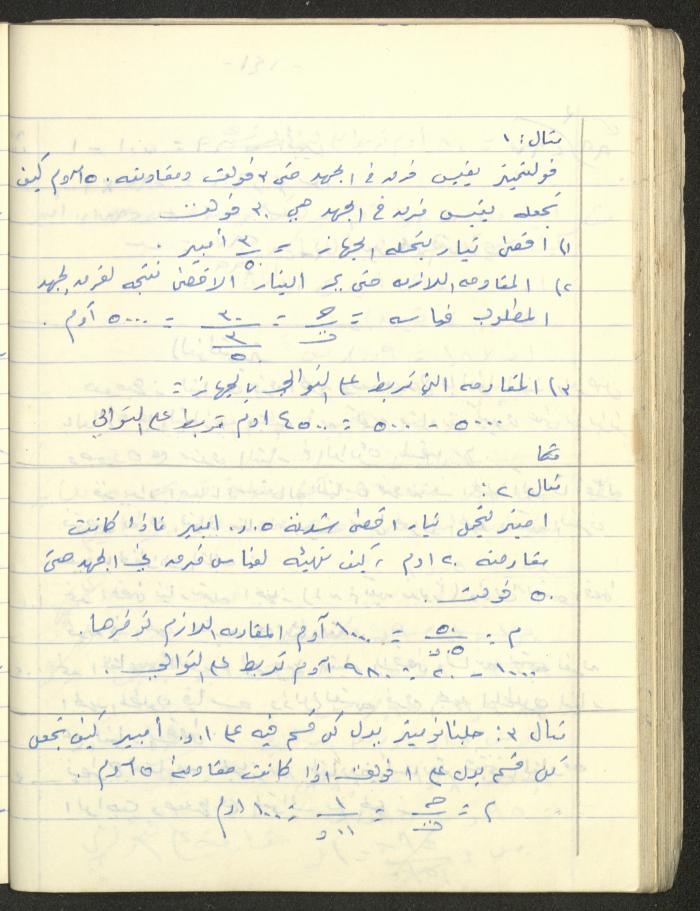 - ١٤١ -
مثال: ١
فولتميتر يقيس فرقه في الجهد حتى ٣ فولت ومقاومته ٥٠٠ اوم كيف
تجعله يقيس فرقه في الجهد حتى ٣٠ فولت
١) اقصى تيار يتحمله الجهاز = ٣/٥٠٠ أمبير .
٢) المقاومه اللازمه حتى يمر التيار الاقصى نتيجة لفرق الجهد
المطلوب قياسه = ج/ت = ٣٠ / ٣/٥٠٠ = ٥٠٠٠ أوم .
٣) المقاومه التي تربط على التوالي بالجهاز =
٥٠٠٠ - ٥٠٠ = ٤٥٠٠ اوم تربط على التوالي
مثال ٢ :
اميتر يتحمل تيار اقصى شدته ٠.٠٥ امبير فاذا كانت
مقاومته ٢٠ اوم ، كيف تهيئه لقياس فرقه في الجهد حتى
٥٠ فولت .
م = ٥٠/٠.٠٥ = ١٠٠٠ أوم المقاومه اللازم توفرها .
١٠٠٠ - ٢٠ = ٩٨٠ أوم تربط على التوالي .
مثال ٣ : جلفانوميتر يدل كل قسم فيه على ٠.٠١ أمبير كيف تجعل
كل قسم يدل على ١ فولت اذا كانت مقاومته ٥ اوم .
م = ج/ت = ١/٠.٠١ = ١٠٠ اوم